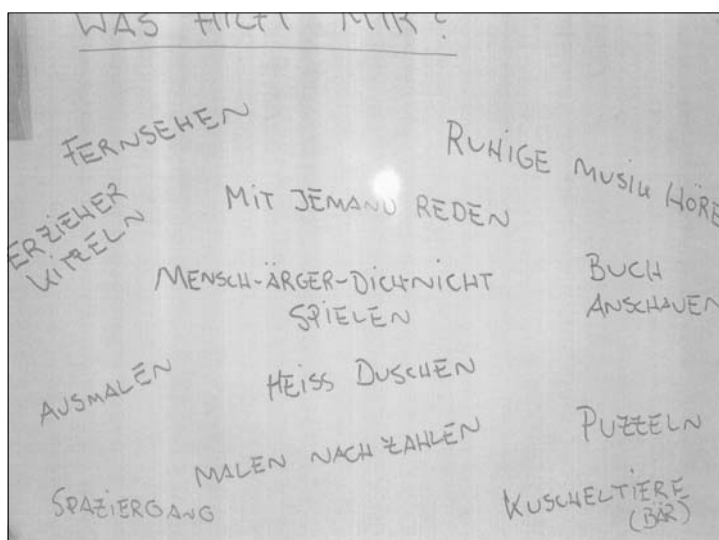 WAS HILFT MIR?
FERNSEHEN
RUHIGE MUSIK HÖRE
ERZIEHER
KITZELN
MIT JEMAND REDEN
MENSCH-ÄRGER-DICH-NICHT
SPIELEN
BUCH
ANSCHAUEN
AUSMALEN
HEISS DUSCHEN
MALEN NACH ZAHLEN
PUZZELN
SPAZIERGANG
KUSCHELTIERE
(BÄR)